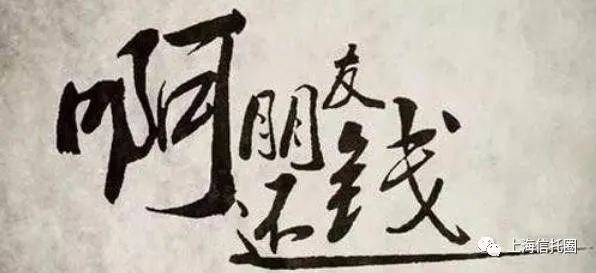 啊朋友
还钱
上海信托圈